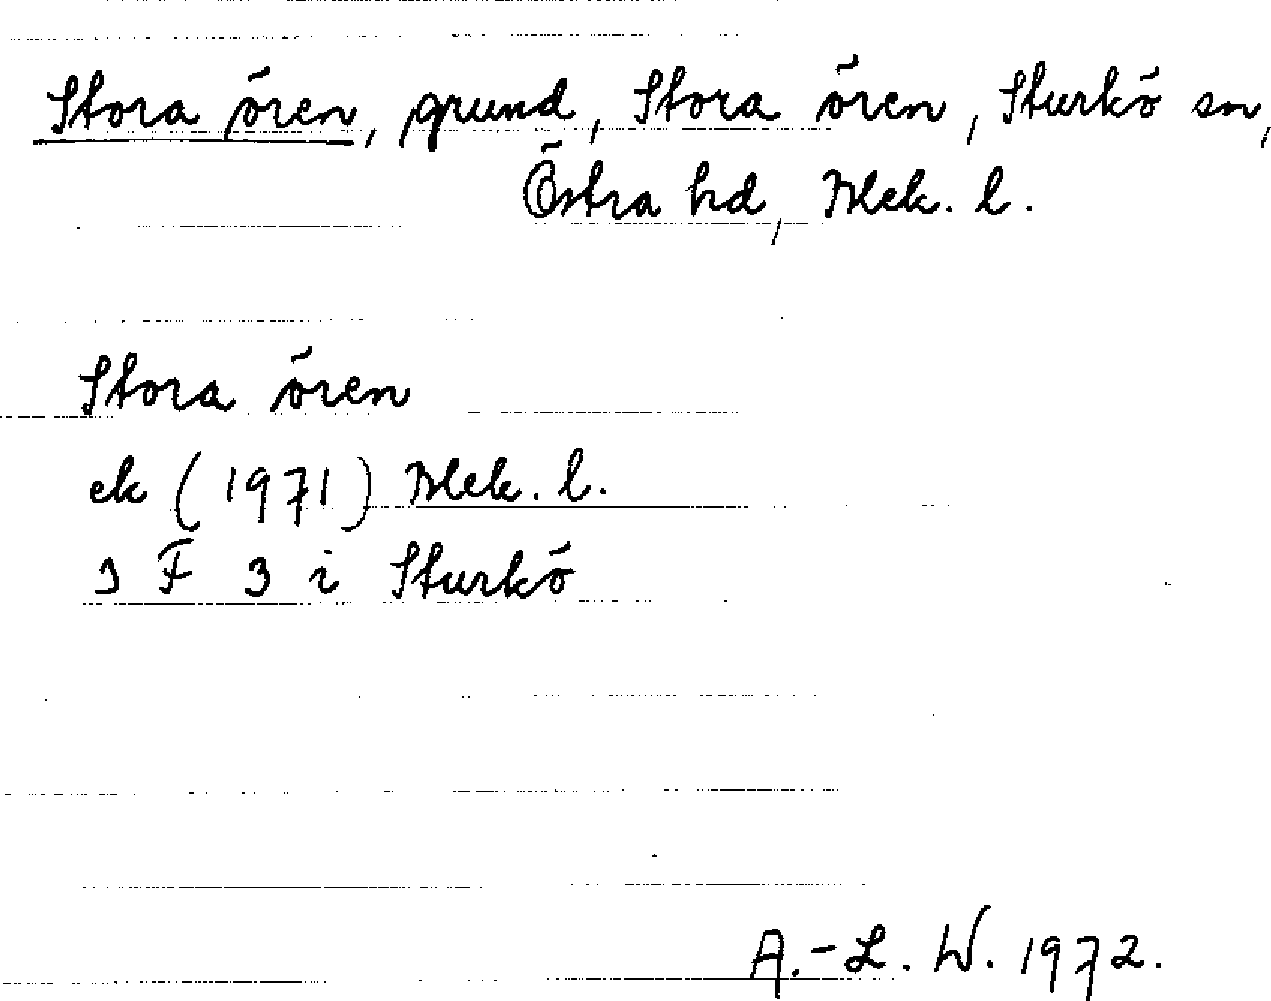 Stora ören, grund, Stora ören, Sturkö sn,
Östra hd, Blek. l.
Stora ören
ek (1971) Blek. l.
3 F 3 i Sturkö
A.-L. W. 1972.